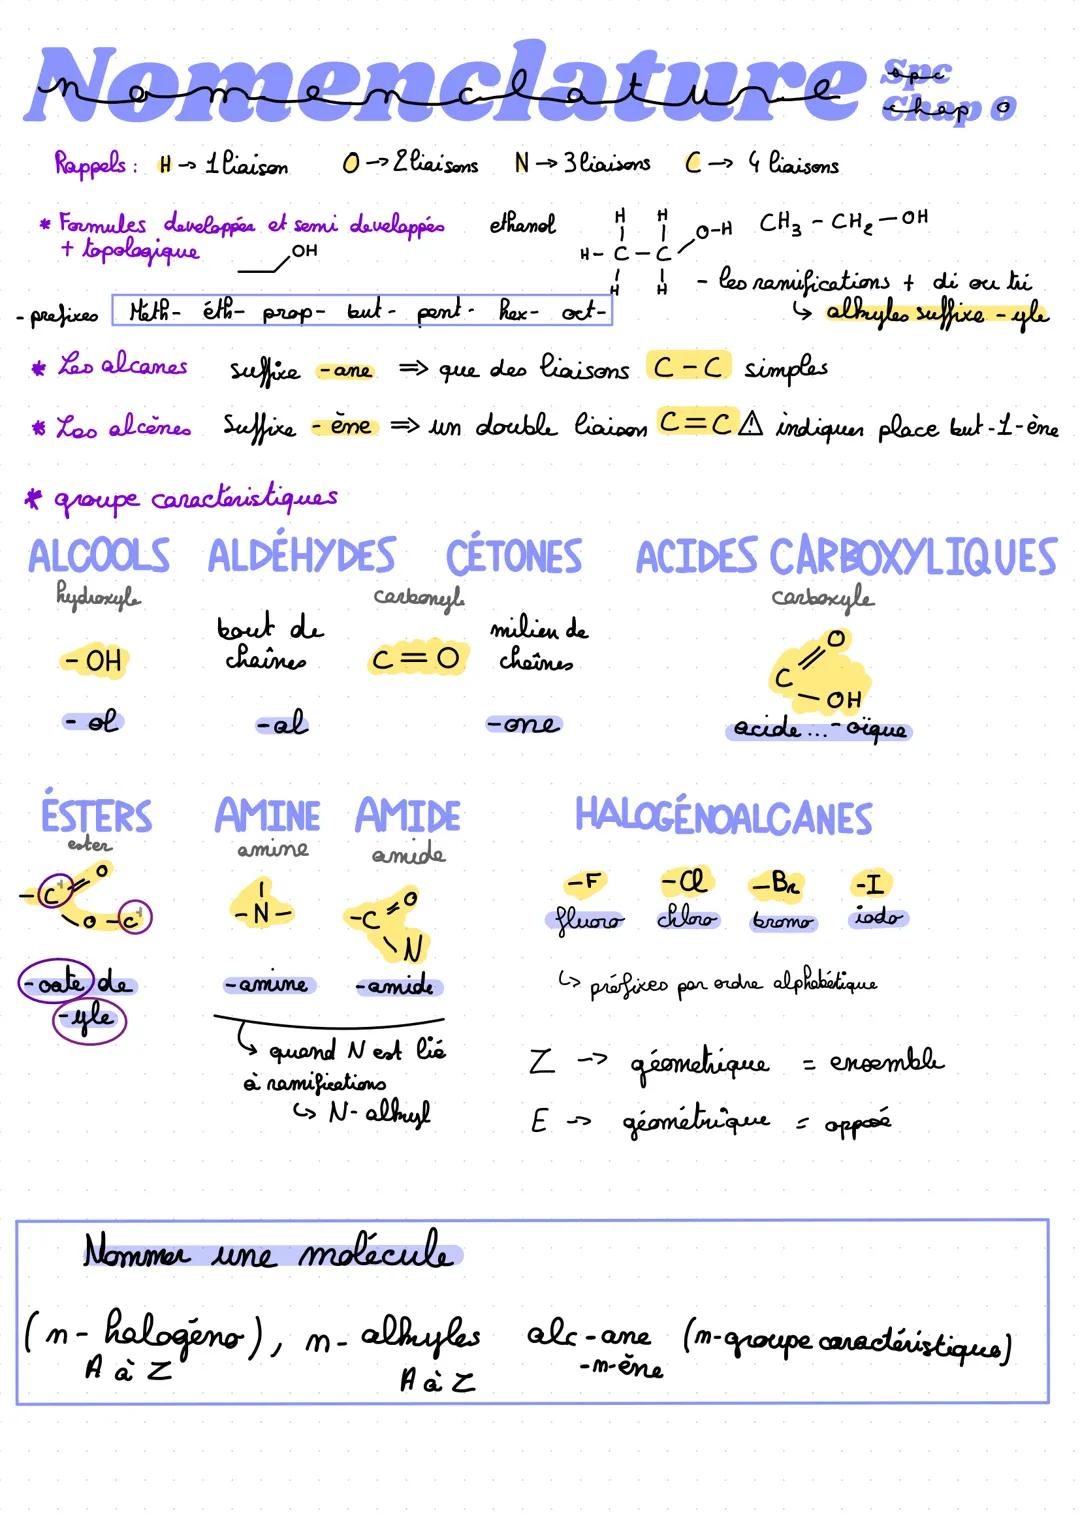 Nomenclature
nomenclature
Spc
spc
Chap 0
chap 0
Rappels : H → 1 liaison O → 2 liaisons N → 3 liaisons C → 4 liaisons
* Formules developpés et semi developpés
+ topologique
OH
ethanol
H H
H - C - C O-H
H H
CH3 - CH2 - OH
- les ramifications + di ou tri
↳ alkyles suffixe - yle
- prefixes Meth- éth- prop- but- pent- hex- oct-
* Les alcanes suffixe -ane ⇒ que des liaisons C - C simples
* Les alcènes Suffixe - ène ⇒ un double liaison C = C ⚠ indiquer place but-1-ène
* groupe caracteristiques
ALCOOLS ALDÉHYDES CÉTONES ACIDES CARBOXYLIQUES
hydroxyle carbonyle carboxyle
- OH
bout de
chaînes
C = O
milieu de
chaînes
O
C
- OH
- ol -al -one acide ... - oïque
ÉSTERS AMINE AMIDE HALOGÉNOALCANES
ester amine amide
- C + O
O - C +
- N -
- C O
N
-F -Cl -Br -I
fluoro chloro bromo iodo
- oate de
- yle
-amine -amide
↳ préfixes par ordre alphabétique
↳ quand N est lié
à ramifications
↳ N- alkyl
Z -> géometrique = ensemble
E -> géométrique = opposé
Nommer une molécule
(n- halogéno), n- alkyles alc - ane (n-groupe caractéristique)
A à Z A à Z -n-ène